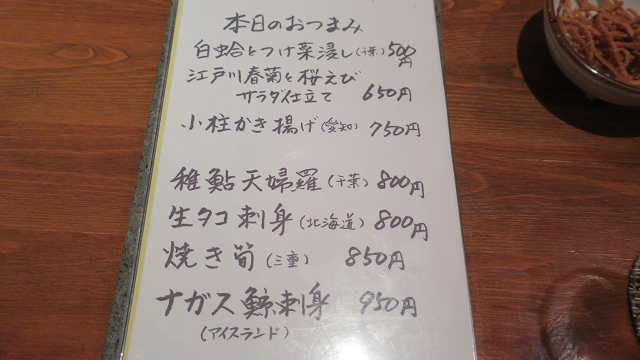 本日のおつまみ
白蛤とつけ菜浸し(千葉)500円
江戸川春菊と桜えび
サラダ仕立て 650円
小柱かき揚げ(愛知) 750円
稚鮎天婦羅(千葉)800円
生タコ刺身(北海道)800円
焼き筍(三重) 850円
ナガス鯨刺身 950円
(アイスランド)